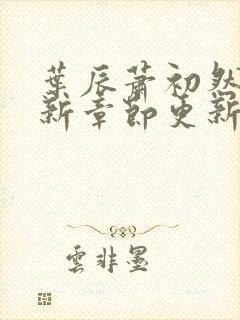 葉辰蕭初然
新章節更新
雲非墨